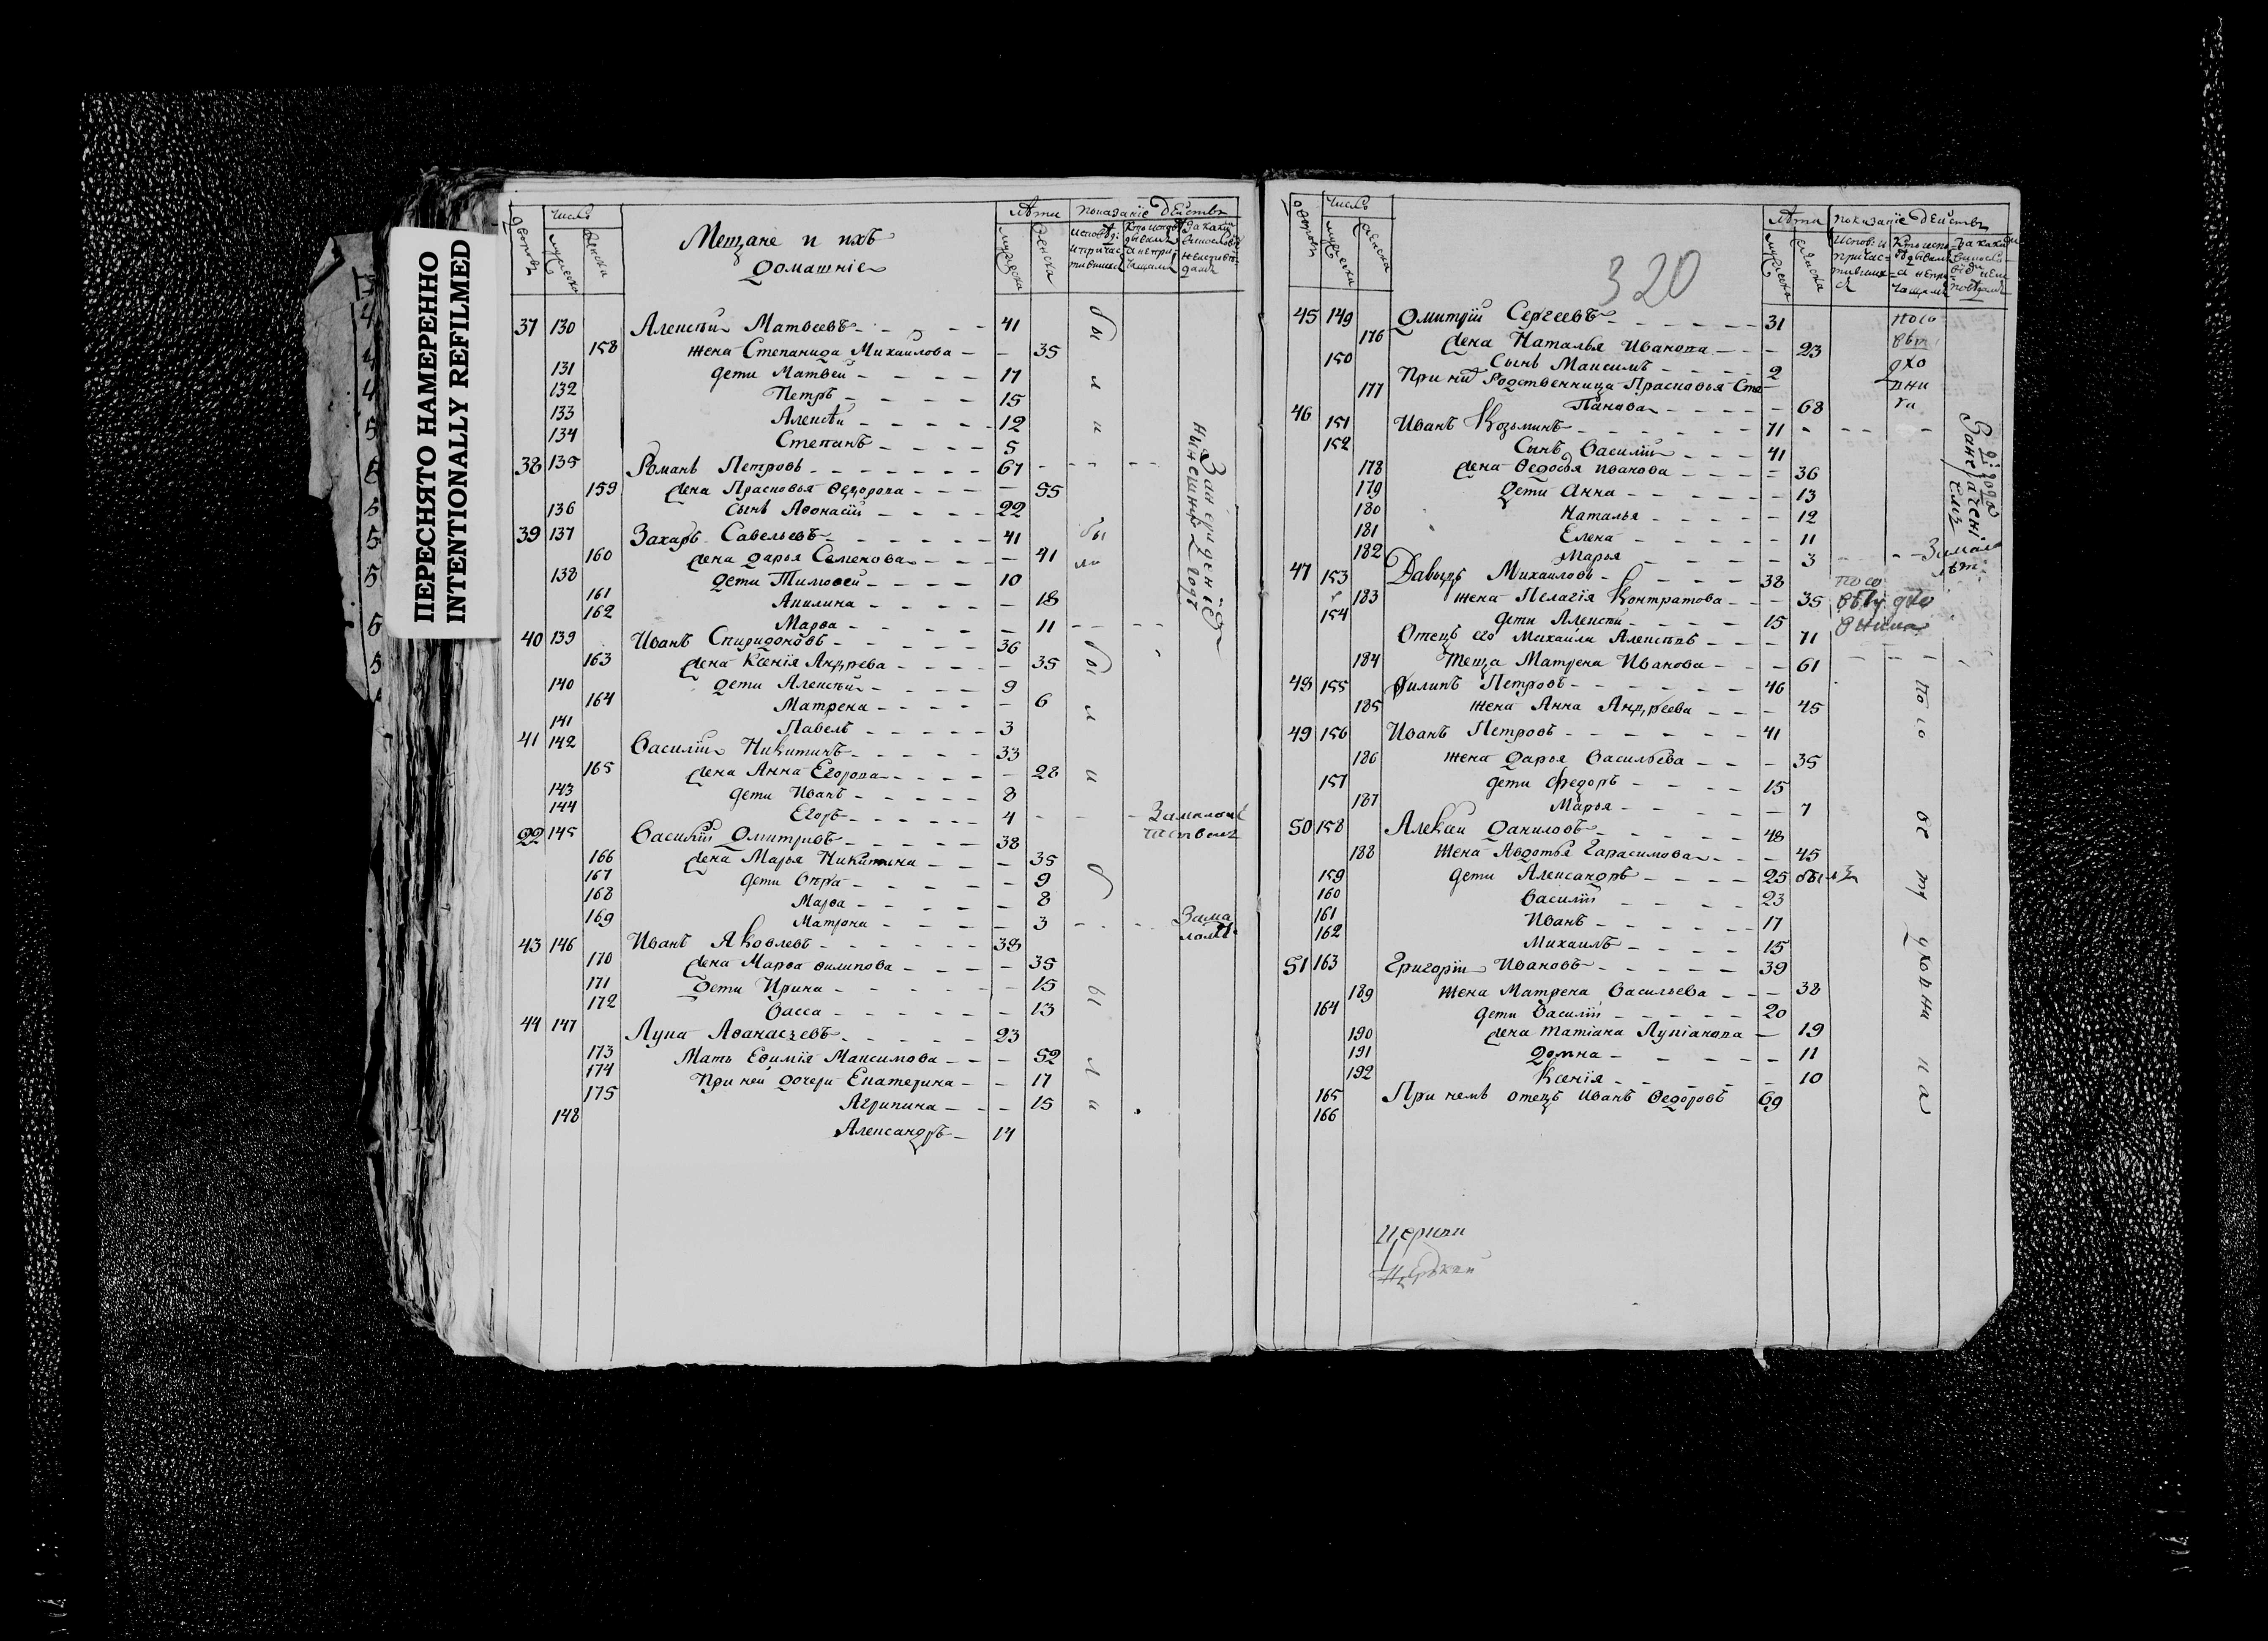 ПЕРЕСНЯТО НАМЕРЕННО
INTENTIONALLY REFILMED
Число
Лѣта Показаніе действъ
Мещане и ихъ
Домашніе
37 130 Алексѣй Матвеевъ 41
158 жена Степанида Михаилова 35
131 дети Матвей 17
132 Петръ 15
133 Алексѣй 12
134 Степанъ 5
38 135 Романъ Петровъ 67
159 жена Прасковья Федорова 55
136 сынъ Афонасій 22
39 137 Захаръ Савельевъ 41
160 жена Дарья Семенова 41
138 дети Тимофей 10
161 Акилина 18
162 Марѳа 11
40 139 Иванъ Спиридоновъ 36
163 жена Ксенія Андрева 35
140 дети Алексѣй 9
164 Матрена 6
141 Павелъ 3
41 142 Василій Никитинъ 33
165 жена Анна Егорова 28
143 дети Иванъ 8
144 Егоръ 4
22 145 Василій Дмитривъ 38
166 жена Марья Никитина 35
167 дети 9
168 Марѳа 8
169 Матрона 3
43 146 Иванъ Яковлевъ 38
170 жена Марѳа Филипова 35
171 Дети Ирина 15
172 Васса 13
44 147 Лука Афанасьевъ 23
173 Мать Ефимія Максимова 52
174 При ней дочери Екатерина 17
175 Агрипина 15
148 Александръ 14
были
нынешняго года
320
Число
Лѣта Показаніе действъ
45 149 Дмитрій Сергеевъ 31
176 жена Наталья Иванова 23
150 Сынъ Максимъ 2
177 При нихъ родственница Прасковья Сте-
панова 68
46 151 Иванъ Козьминъ 71
152 Сынъ Василій 41
178 жена Федосья Иванова 36
179 дети Анна 13
180 Наталья 12
181 Елена 11
182 Марья 3
47 153 Давыдъ Михаиловъ 38
183 жена Пелагія Контратова 35
154 дети Алексѣй 15
Отецъ его Михаила Алексѣевъ 71
184 Теща Матрена Иванова 61
48 155 Филипъ Петровъ 46
185 жена Анна Андреева 45
49 156 Иванъ Петровъ 41
186 жена Дарья Васильева 35
157 дети Федоръ 15
187 Марья 7
50 158 Алексѣй Даниловъ 48
188 жена Авдотья Гарасимова 45
159 дети Александръ 25
160 Василій 23
161 Иванъ 17
162 Михаилъ 15
51 163 Григорій Ивановъ 39
189 жена Матрена Васильева 38
164 дети Василій 20
190 жена Татіана Лукіанова 19
191 Домна 11
192 Ксенія 10
165 При немъ отецъ Иванъ Федоровъ 69
166
по совету духовника
Церкви